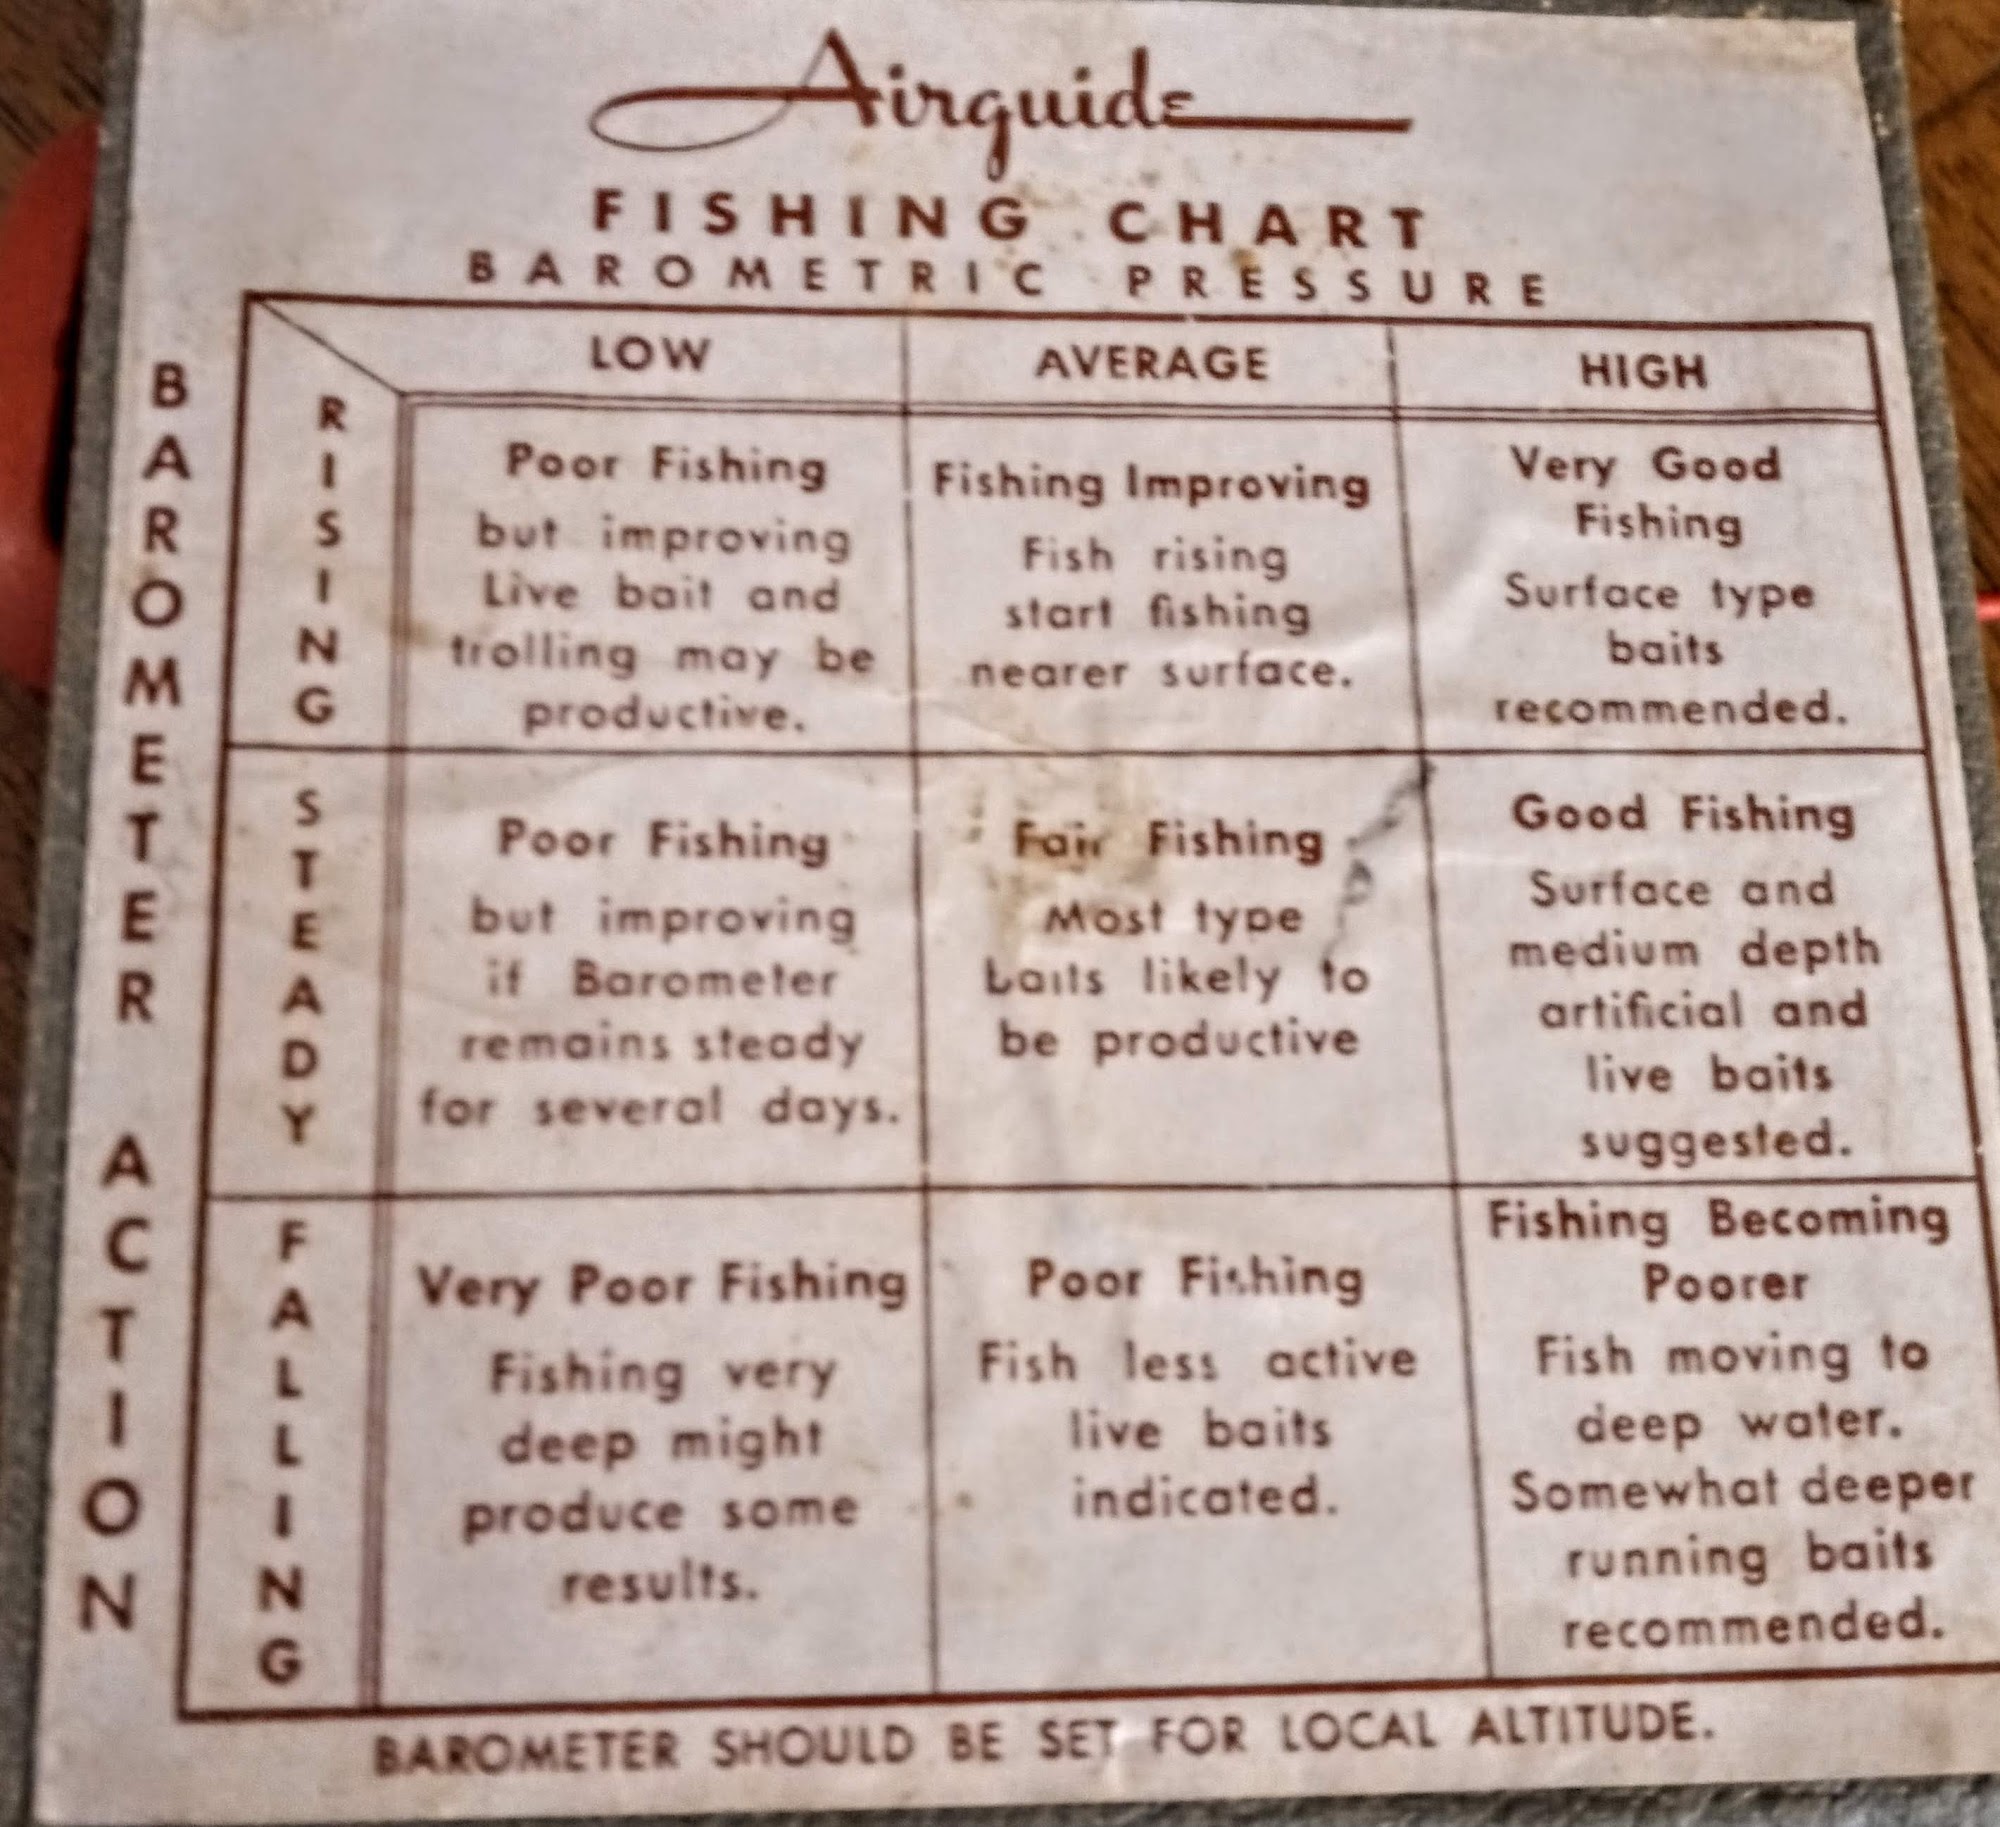 Airguide
FISHING CHART
BAROMETRIC PRESSURE
BAROMETER ACTION
LOW
AVERAGE
HIGH
RISING
Poor Fishing
but improving
Live bait and
trolling may be
productive.
Fishing Improving
Fish rising
start fishing
nearer surface.
Very Good
Fishing
Surface type
baits
recommended.
STEADY
Poor Fishing
but improving
if Barometer
remains steady
for several days.
Fair Fishing
Most type
baits likely to
be productive
Good Fishing
Surface and
medium depth
artificial and
live baits
suggested.
FALLING
Very Poor Fishing
Fishing very
deep might
produce some
results.
Poor Fishing
Fish less active
live baits
indicated.
Fishing Becoming
Poorer
Fish moving to
deep water.
Somewhat deeper
running baits
recommended.
BAROMETER SHOULD BE SET FOR LOCAL ALTITUDE.